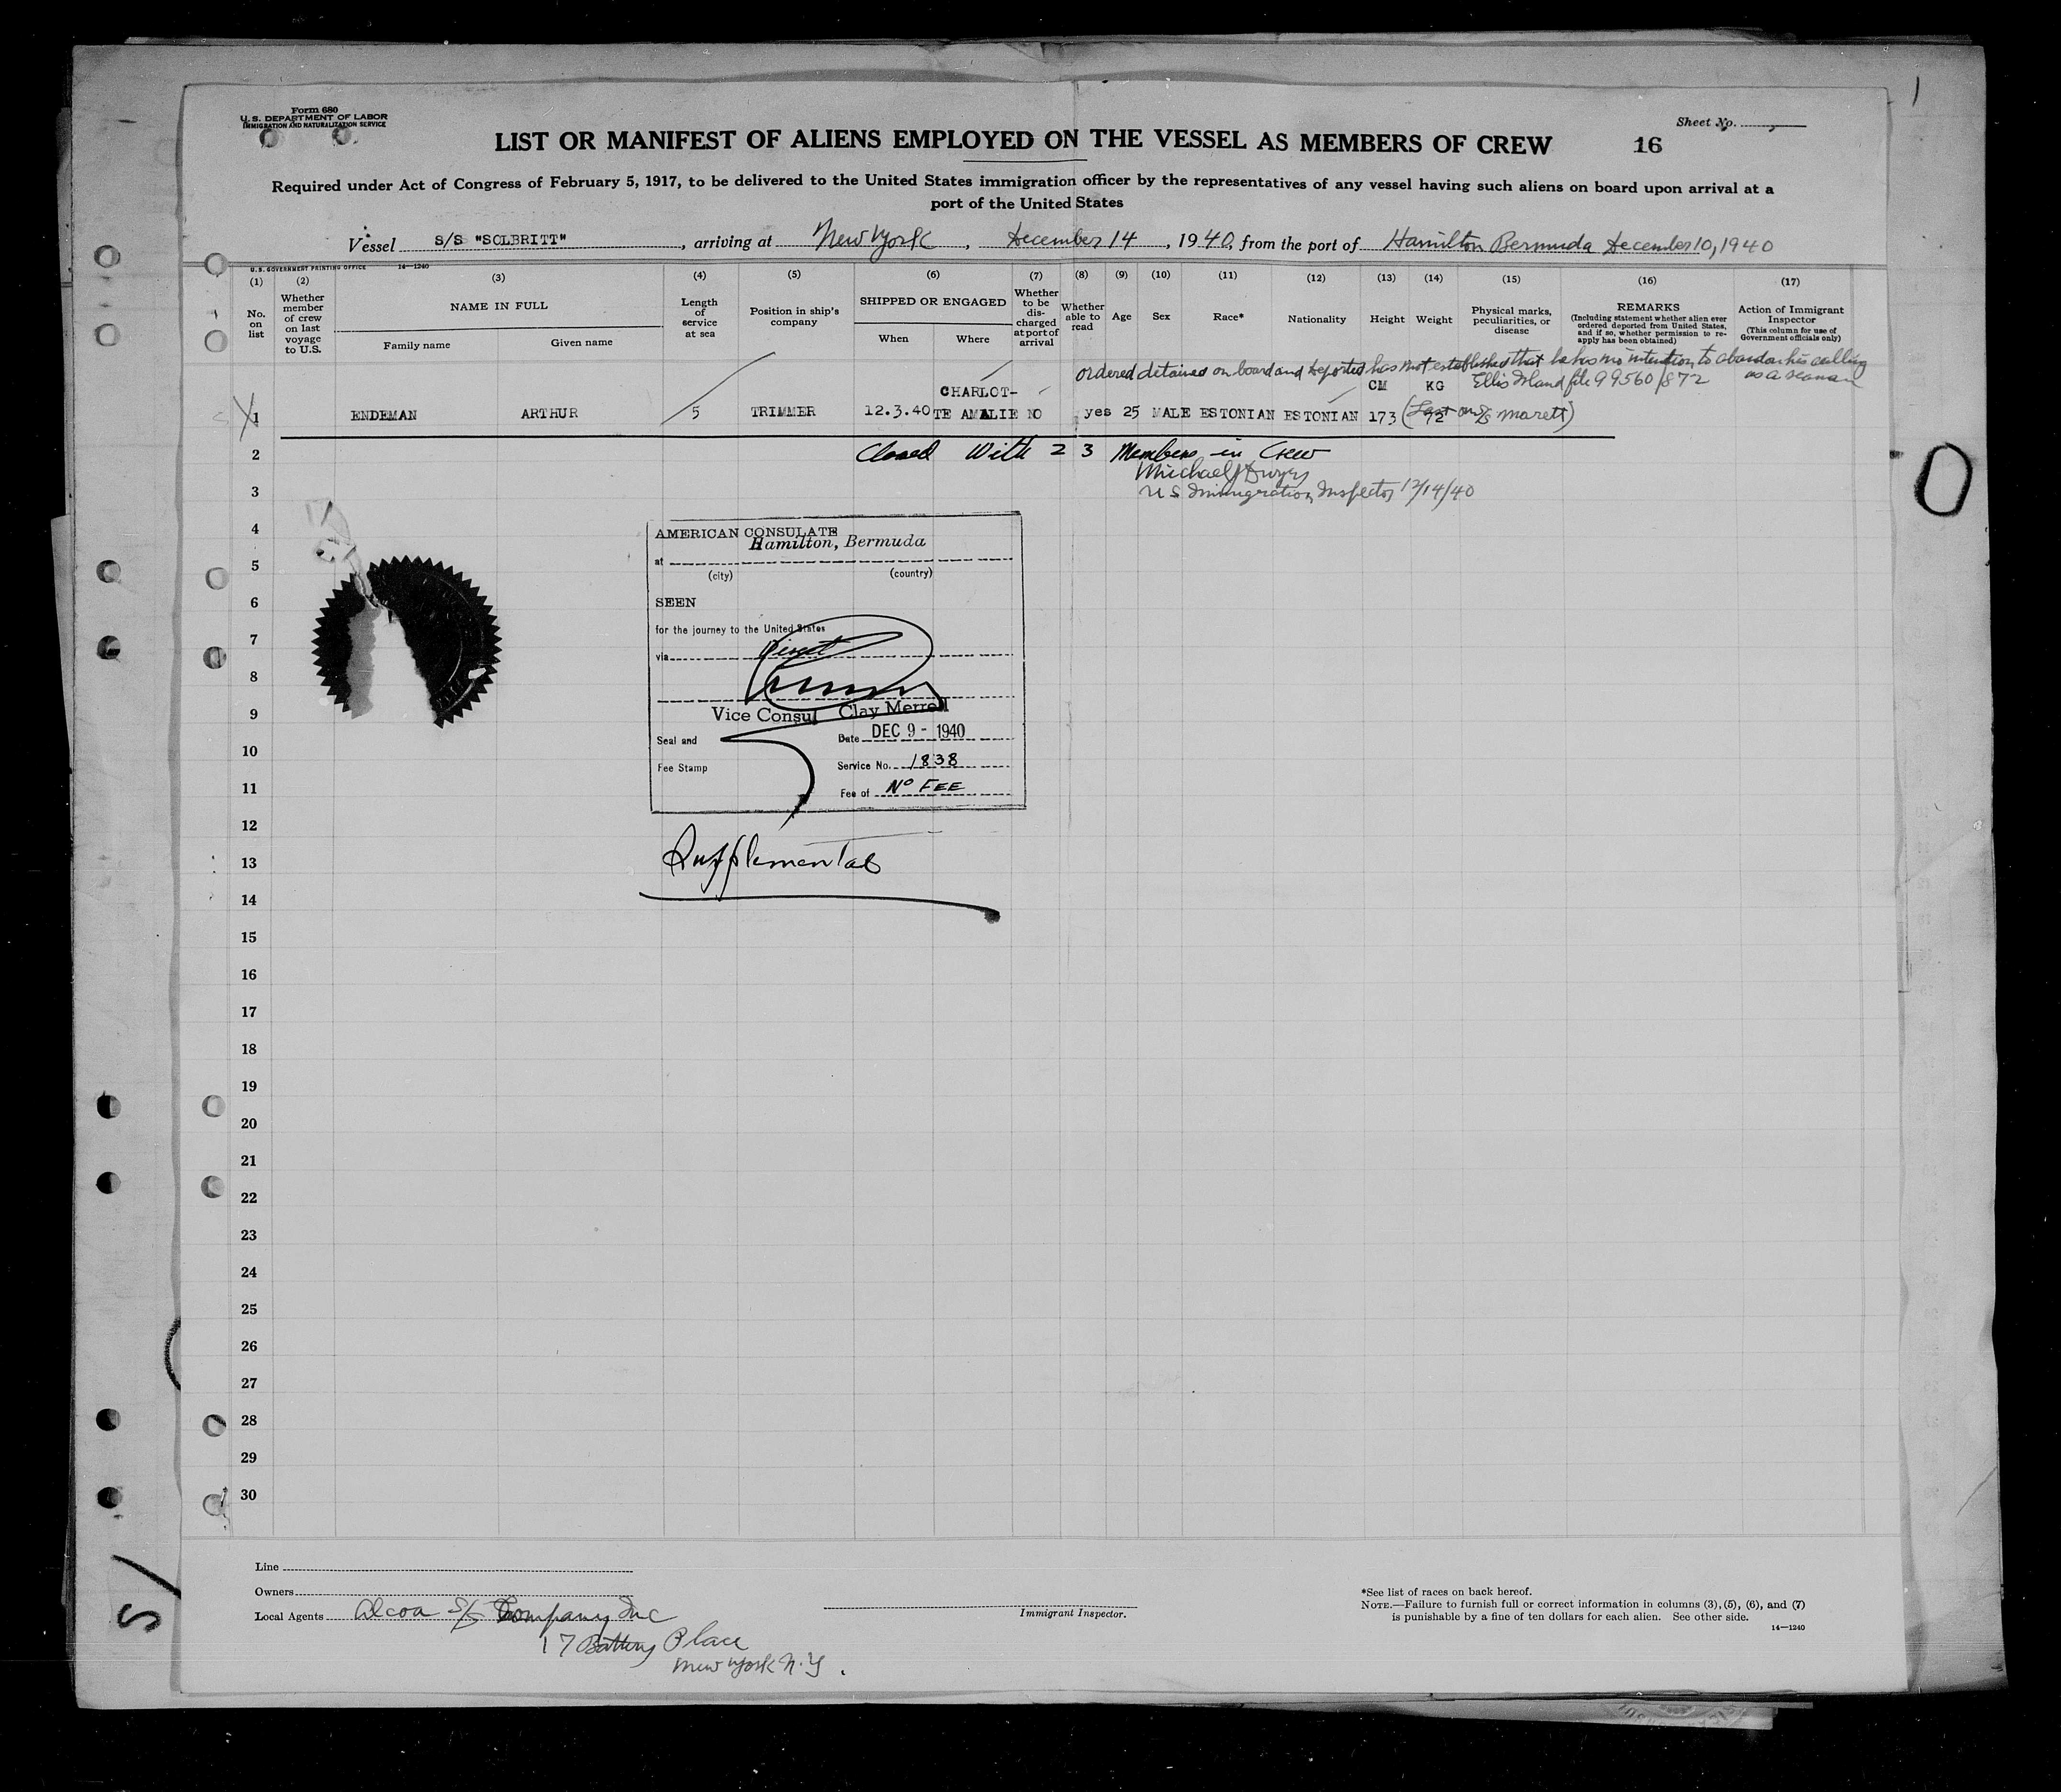 Form 680
U. S. DEPARTMENT OF LABOR
IMMIGRATION AND NATURALIZATION SERVICE
Sheet No.
LIST OR MANIFEST OF ALIENS EMPLOYED ON THE VESSEL AS MEMBERS OF CREW 16
Required under Act of Congress of February 5, 1917, to be delivered to the United States immigration officer by the representatives of any vessel having such aliens on board upon arrival at a
port of the United States
Vessel S/S "SOLBRITT", arriving at New York, December 14, 1940, from the port of Hamilton Bermuda December 10, 1940
U. S. GOVERNMENT PRINTING OFFICE 14—1240
(1) No. on list
(2) Whether member of crew on last voyage to U.S.
(3) NAME IN FULL
Family name Given name
(4) Length of service at sea
(5) Position in ship's company
(6) SHIPPED OR ENGAGED
When Where
(7) Whether to be discharged at port of arrival
(8) Whether able to read
(9) Age
(10) Sex
(11) Race*
(12) Nationality
(13) Height
(14) Weight
(15) Physical marks, peculiarities, or disease
(16) REMARKS
(Including statement whether alien ever ordered deported from United States, and if so, whether permission to reapply has been obtained)
(17) Action of Immigrant Inspector
(This column for use of Government officials only)
ordered detained on board and deported has not established that he has no intention to abandon his calling
as a seaman
CM KG Ellis Island file 99560/872
CHARLOT-
1 ENDEMAN ARTHUR 5 TRIMMER 12.3.40 TE AMALIE NO yes 25 MALE ESTONIAN ESTONIAN 173 72 (Last on S/S Marett)
2 Closed With 23 Members in Crew
Michael J Dwyer
3 U S Immigration Inspector 12/14/40
4
5
6
7
8
9
10
11
12
13
14
15
16
17
18
19
20
21
22
23
24
25
26
27
28
29
30
AMERICAN CONSULATE
Hamilton, Bermuda
at
(city) (country)
SEEN
for the journey to the United States
via direct
Vice Consul Clay Merrell
Seal and Date DEC 9 - 1940
Fee Stamp Service No. 1838
Fee of No FEE
Supplemental
Line
Owners
Local Agents Alcoa S/S Company Inc
17 Battery Place
New York N.Y.
Immigrant Inspector.
*See list of races on back hereof.
NOTE.—Failure to furnish full or correct information in columns (3), (5), (6), and (7)
is punishable by a fine of ten dollars for each alien. See other side.
14—1240